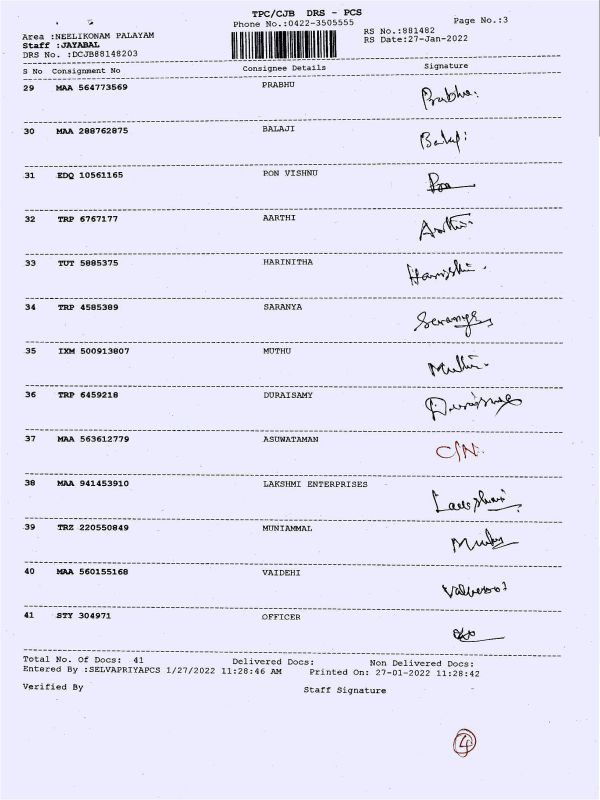 TPC/CJB DRS - PCS
Phone No.:0422-3505555
Page No.:3
Area :NEELIKONAM PALAYAM
RS No.:881482
Staff :JAYABAL
RS Date:27-Jan-2022
DRS No. :DCJB88148203
S No Consignment No Consignee Details Signature
29 MAA 564773569 PRABHU Prabhu.
30 MAA 288762875 BALAJI Balaji
31 EDQ 10561165 PON VISHNU
32 TRP 6767177 AARTHI Aarthi
33 TUT 5885375 HARINITHA
34 TRP 4585389 SARANYA Saranya
35 IXM 500913807 MUTHU Muthu
36 TRP 6459218 DURAISAMY
37 MAA 563612779 ASUWATAMAN C/N.
38 MAA 941453910 LAKSHMI ENTERPRISES
39 TRZ 220550849 MUNIAMMAL
40 MAA 560155168 VAIDEHI
41 STY 304971 OFFICER
Total No. Of Docs: 41 Delivered Docs: Non Delivered Docs:
Entered By :SELVAPRIYAPCS 1/27/2022 11:28:46 AM Printed On: 27-01-2022 11:28:42
Verified By Staff Signature
4